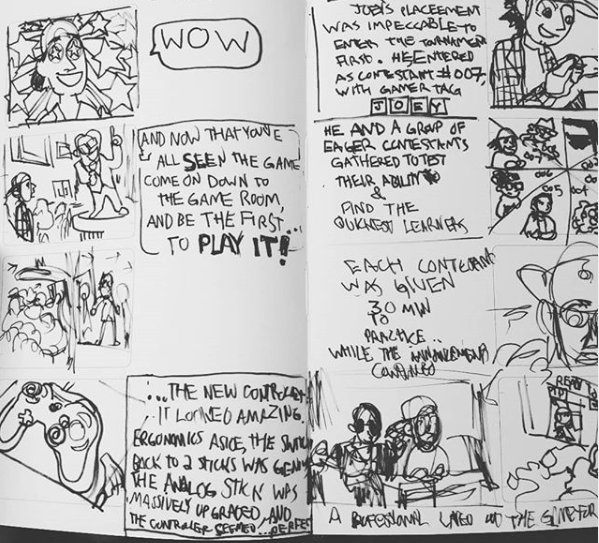 WOW
AND NOW THAT YOU'VE
ALL SEEN THE GAME
COME ON DOWN TO
THE GAME ROOM,
AND BE THE FIRST...
TO PLAY IT!
...THE NEW CONTROLLER
IT LOOKED AMAZING.
ERGONOMICS ASIDE, THE SWITCH
BACK TO 2 STICKS WAS
THE ANALOG STICK WAS
MASSIVELY UPGRADED, AND
THE CONTROLLER SEEMED...
JOEY'S PLACEEMENT
WAS IMPECCABLE TO
ENTER THE TOURNAMENT
FIRST. HE ENTERED
AS CONTESTANT #007,
WITH GAMER TAG
JOEY
HE AND A GROUP OF
EAGER CONTESTANTS
GATHERED TO TEST
THEIR ABILITY
&
FIND THE
QUICKEST LEARNERS
007
006
005
004
EACH CONTESTANT
WAS GIVEN
30 MIN
TO
PRACTICE..
WHILE THE ANNOUNCEMENTS
CONTINUED
READY
A
THE